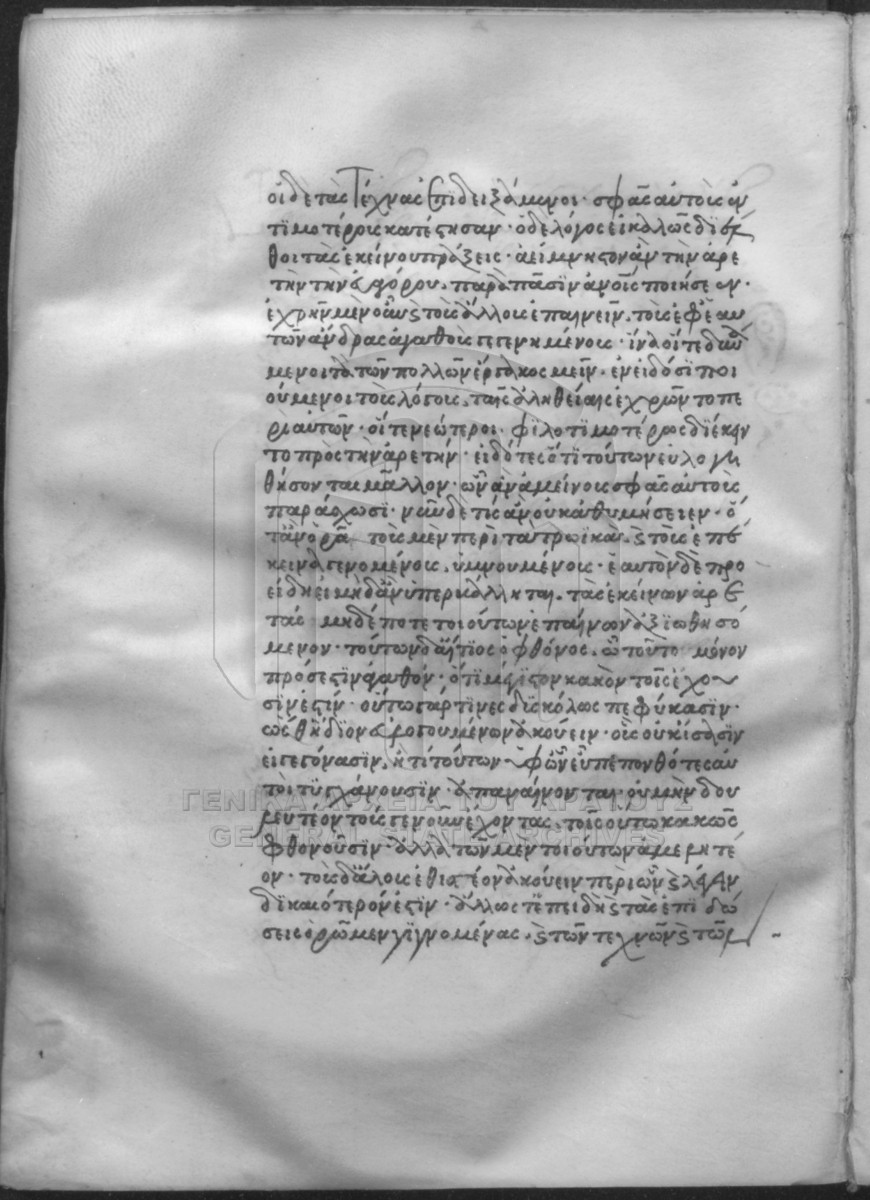 οἱ δὲ τὰς τέχνας ἐπιδειξάμενοι· σφᾶς αὐτοὺς ἐν
τιμοτέροις κατέστησαν· ὁ δὲ λόγος εἰ καλῶς διέλ
θοι τὰς ἐκείνου πράξεις· ἀείμνηστον ἂν τὴν ἀρε
τὴν τὴν εὐαγόρου, παρὰ πᾶσιν ἀνοις ποιήσειεν·
ἐχρῆν μὲν οὖν καὶ τοὺς ἄλλους ἐπαινεῖν, τοὺς ἐφ' ἑαυ
τῶν ἄνδρας ἀγαθοὺς γεγενημένους· ἵν' οἵ τε δυνά
μενοι τὰ τῶν πολλῶν ἔργα κοσμεῖν, ἐν εἰδόσι ποι
ούμενοι τοὺς λόγους, ταῖς ἀληθείαις ἐχρῶντο πε
ρὶ αὐτῶν· οἵ τε νεώτεροι, φιλοτιμοτέρως διέκειν
το πρὸς τὴν ἀρετήν, εἰδότες ὅτι τούτων εὐλογη
θήσονται μᾶλλον· ὧν ἂν ἀμείνους σφᾶς αὐτοὺς
παράσχωσι· νῦν δὲ τίς ἂν οὐκ ἀθυμήσειεν· ὅ
τ' ἂν ὁρᾷ τοὺς μὲν περὶ τὰ τρωϊκὰ, καὶ τοὺς ἐπέ
κεινα γενομένους, ὑμνουμένους· ἑαυτὸν δὲ προ
ειδῇ εἰ μηδ' ἂν ὑπερβάλληται, τὰς ἐκείνων ἀρε
τάς μηδέποτε τοιούτων ἐπαίνων ἀξιωθησό
μενον· τούτων δ' αἴτιος ὁ φθόνος, ᾧ τοῦτο μόνον
πρόσεστιν ἀγαθόν, ὅτι μέγιστον κακὸν τοῖς ἔχου
σίν ἐστίν· οὕτω γάρ τινες δυσκόλως πεφύκασιν·
ὥσθ' ἥδιον εὐλογουμένων ἀκούειν· οὓς οὐκ ἴσασιν
εἰ γεγόνασιν, ἢ τούτων ὑφ' ὧν εὖ πεπονθότες αὐ
τοὶ τυγχάνουσιν, οὐ μὴν δου
λευτέον τοὺς νοῦν ἔχοντας, τοῖς οὕτω κακῶς
φθονοῦσιν· ἀλλὰ τῶν μὲν τοιούτων ἀμελητέ
ον· τοὺς δ' ἄλλους ἐθιστέον ἀκούειν περὶ ὧν καὶ λέγειν
δικαιότερόν ἐστιν· ἄλλως τ' ἐπειδὴ καὶ τὰς ἐπιδό
σεις ὁρῶμεν γιγνομένας, καὶ τῶν τεχνῶν καὶ τῶν
ΓΕΝΙΚΑ ΑΡΧΕΙΑ ΤΟΥ ΚΡΑΤΟΥΣ
GENERAL STATE ARCHIVES